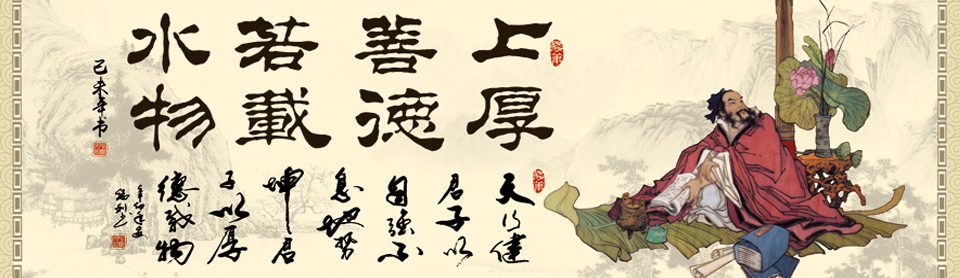 上善若水
厚德載物
己未年书
天行健
君子以
自强不
息地势
坤君
子以厚
德载物